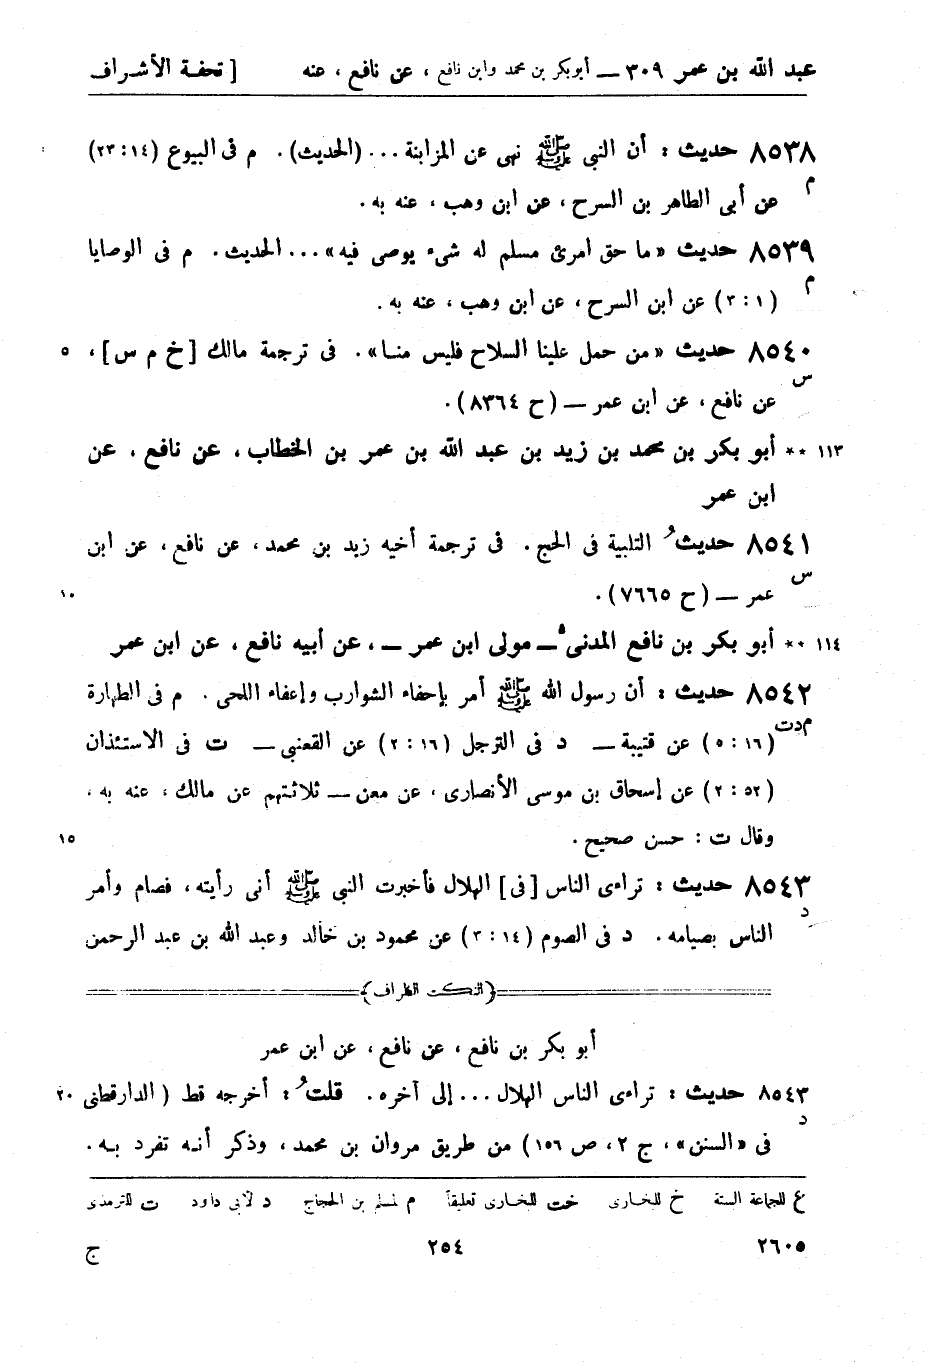 عبد الله بن عمر ٣٠٩ — أبوبكر بن محمد وابن نافع ، عن نافع ، عنه [ تحفة الأشراف
٨٥٣٨ حديث : أن النبي ﷺ نهى عن المزابنة ... (الحديث) . م فى البيوع (٢٣:١٤)
م
عن أبى الطاهر بن السرح ، عن ابن وهب ، عنه به .
٨٥٣٩ حديث «ما حق امرئ مسلم له شىء يوصى فيه» ... الحديث . م فى الوصايا
م
(٣:١) عن ابن السرح ، عن ابن وهب ، عنه به .
٨٥٤٠ حديث «من حمل علينا السلاح فليس منا» . فى ترجمة مالك [خ م س] ، ٥
س
عن نافع ، عن ابن عمر — (ح ٨٣٦٤) .
١١٣ ** أبو بكر بن محمد بن زيد بن عبد الله بن عمر بن الخطاب ، عن نافع ، عن
ابن عمر
٨٥٤١ حديثُ التلبية فى الحج . فى ترجمة أخيه زيد بن محمد ، عن نافع ، عن ابن
س
عمر — (ح ٧٦٦٥) . ١٠
١١٤ ** أبو بكر بن نافع المدنى — مولى ابن عمر — ، عن أبيه نافع ، عن ابن عمر
٨٥٤٢ حديث : أن رسول الله ﷺ أمر بإحفاء الشوارب وإعفاء اللحى . م فى الطهارة
م د ت
(٥:١٦) عن قتيبة — د فى الترجل (٢:١٦) عن القعنبى — ت فى الاستئذان
(٢:٥٢) عن إسحاق بن موسى الأنصارى ، عن معن — ثلاثتهم عن مالك ، عنه به ،
وقال ت : حسن صحيح . ١٥
٨٥٤٣ حديث : تراءى الناس [فى] الهلال فأخبرت النبى ﷺ أنى رأيته ، فصام وأمر
د
الناس بصيامه . د فى الصوم (٣:١٤) عن محمود بن خالد وعبد الله بن عبد الرحمن
(النكت الظراف)
أبو بكر بن نافع ، عن نافع ، عن ابن عمر
٨٥٤٣ حديث : تراءى الناس الهلال ... إلى آخره . قلتُ : أخرجه قط (الدارقطنى ٢٠
د
فى «السنن» ، ج ٢ ، ص ١٥٦) من طريق مروان بن محمد ، وذكر أنه تفرد به .
ع للجماعة الستة خ للبخارى خت للبخارى تعليقاً م لمسلم بن الحجاج د لأبى داود ت للترمذى
٢٦٠٥ ٢٥٤ ج